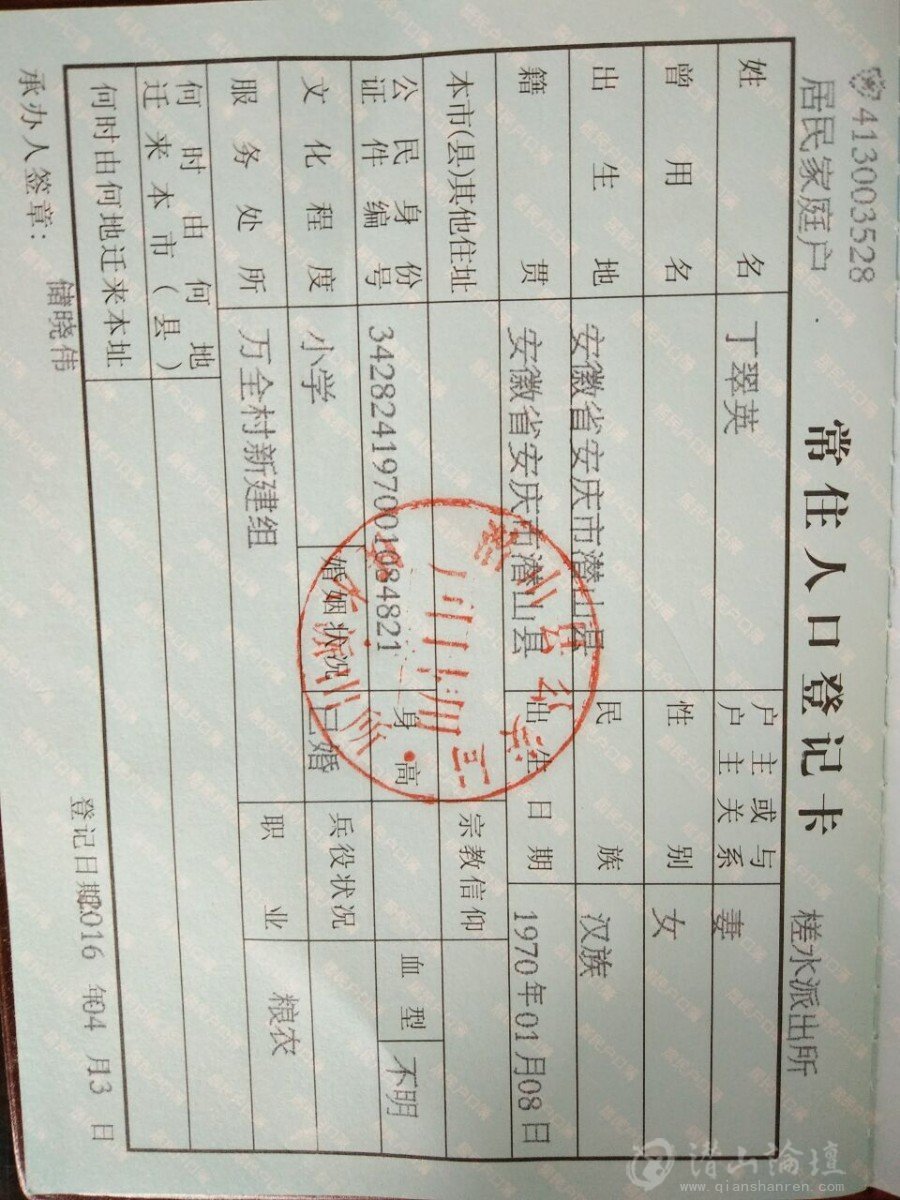 413003528
居民家庭户
槎水派出所
常住人口登记卡
姓名 丁翠英 户主或与户主关系 妻
曾用名 性别 女
出生地 安徽省安庆市潜山县 民族 汉族
籍贯 安徽省安庆市潜山县 出生日期 1970年01月08日
本市(县)其他住址 宗教信仰
公民身份证件编号 342824197001084821 身高 血型 不明
文化程度 小学 婚姻状况 已婚 兵役状况
服务处所 万全村新建组 职业 粮农
何时由何地迁来本市(县)
何时由何地迁来本址
承办人签章: 储晓伟 登记日期2016 年04 月3 日
潜山論壇
www.qianshanren.com